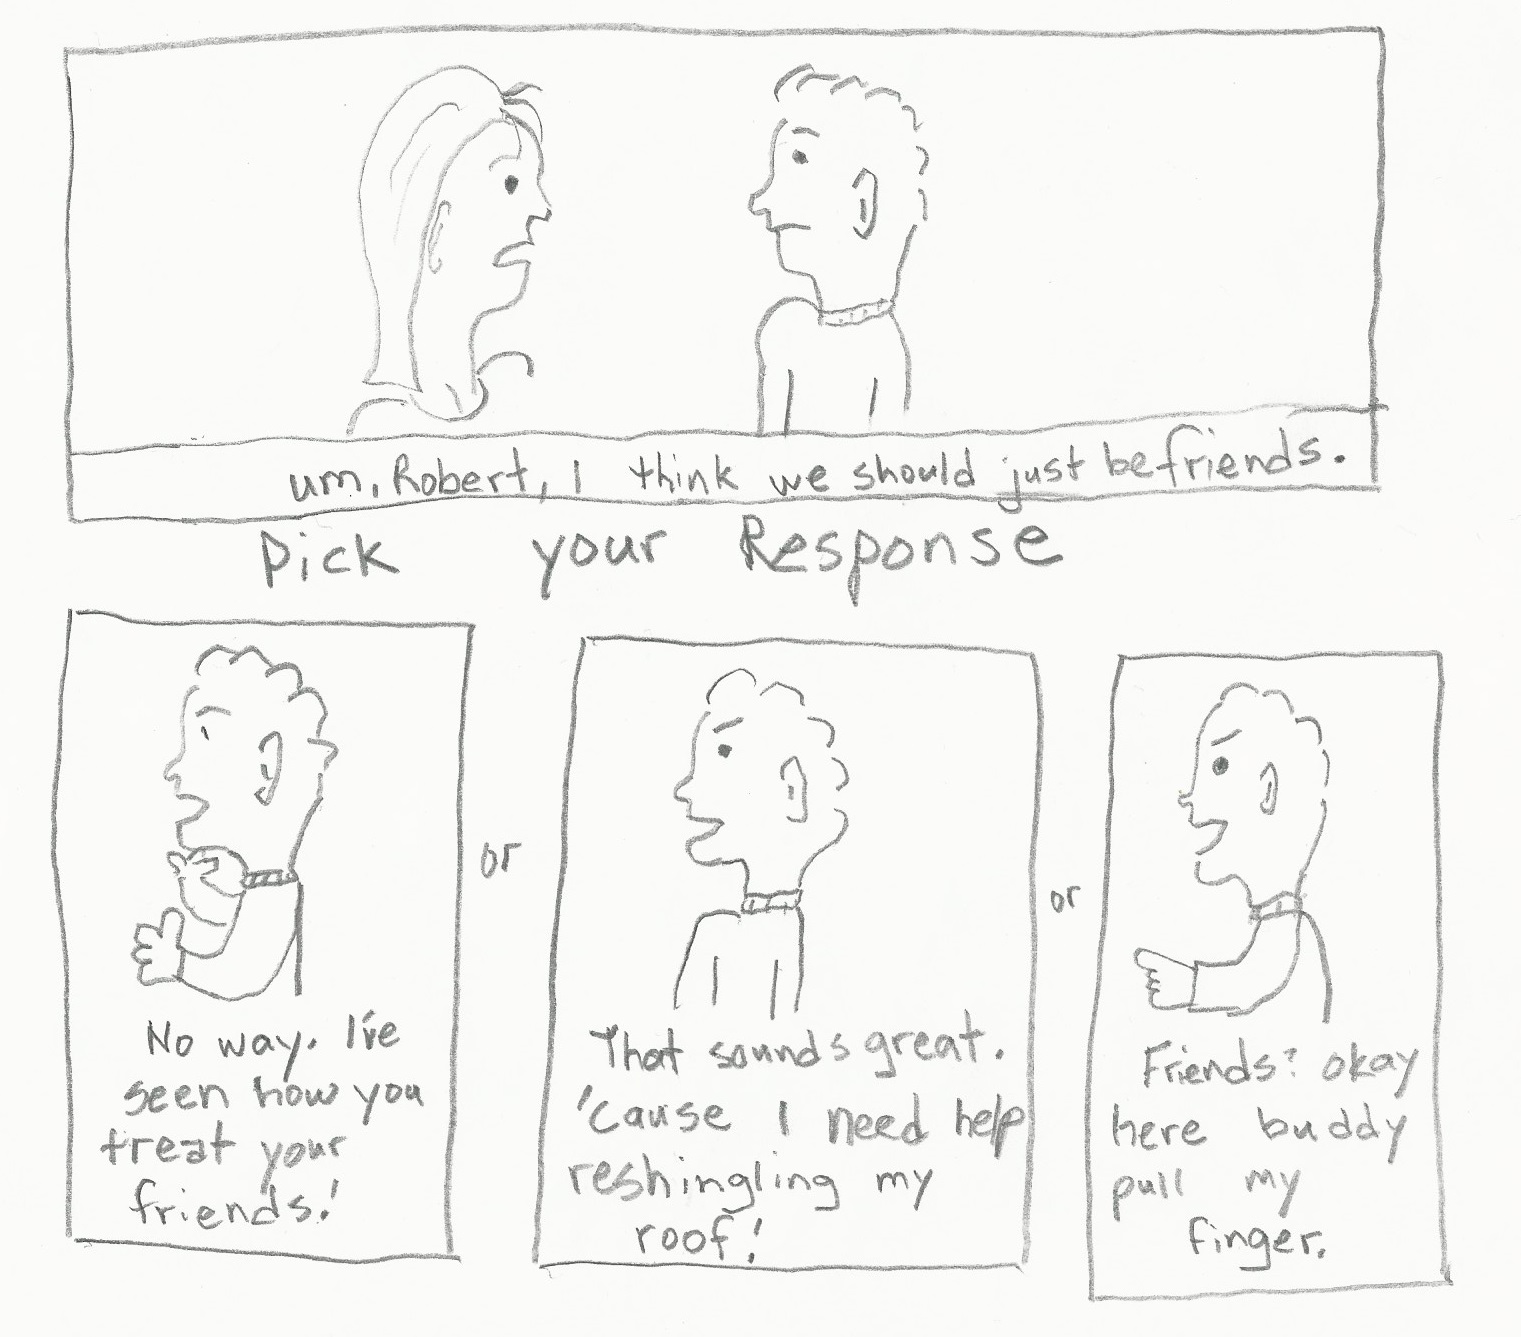 um, Robert, I think we should just be friends.
Pick your Response
No way. I've
seen how you
treat your
friends!
or
That sounds great.
'cause I need help
reshingling my
roof!
or
Friends? okay
here buddy
pull my
finger.